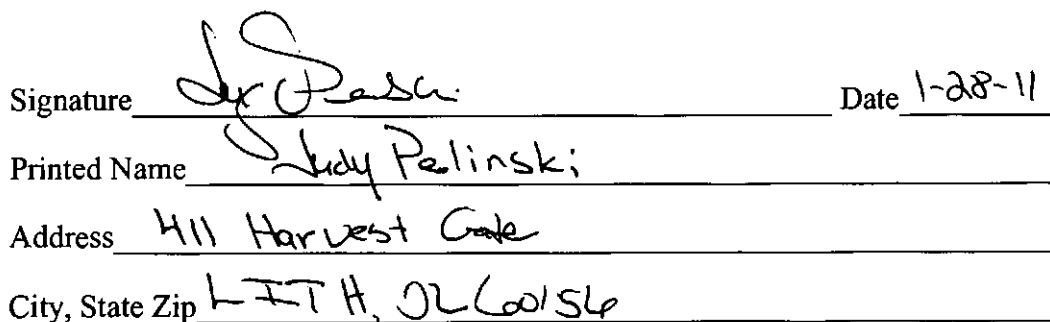 Signature Date 1-28-11
Printed Name Judy Pelinski
Address 411 Harvest Gate
City, State Zip LITH, IL 60156